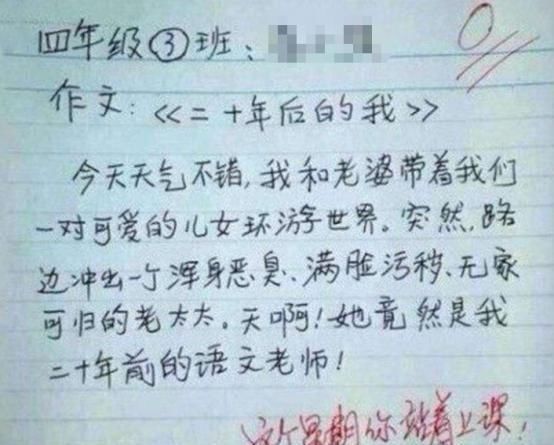 四年级③班:
0
作文:《二十年后的我》
今天天气不错,我和老婆带着我们
一对可爱的儿女环游世界。突然,路
边冲出一个浑身恶臭、满脸污秽、无家
可归的老太太。天啊!她竟然是我
二十年前的语文老师!
这个星期你站着上课!